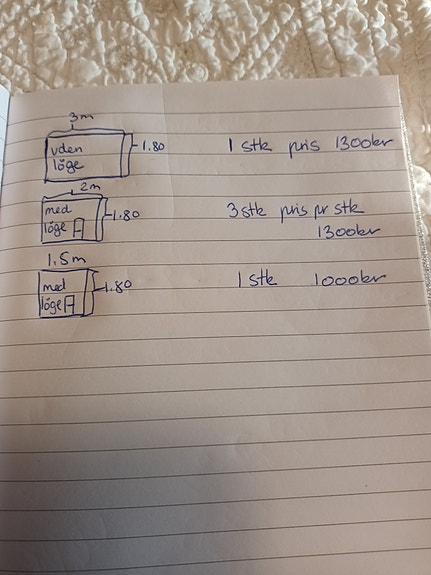 3m
uden
löge
1.80
1 stk pris 1300kr
2m
med
löge
1.80
3 stk pris pr stk
1300kr
1.5m
med
löge
1.80
1 stk 1000kr